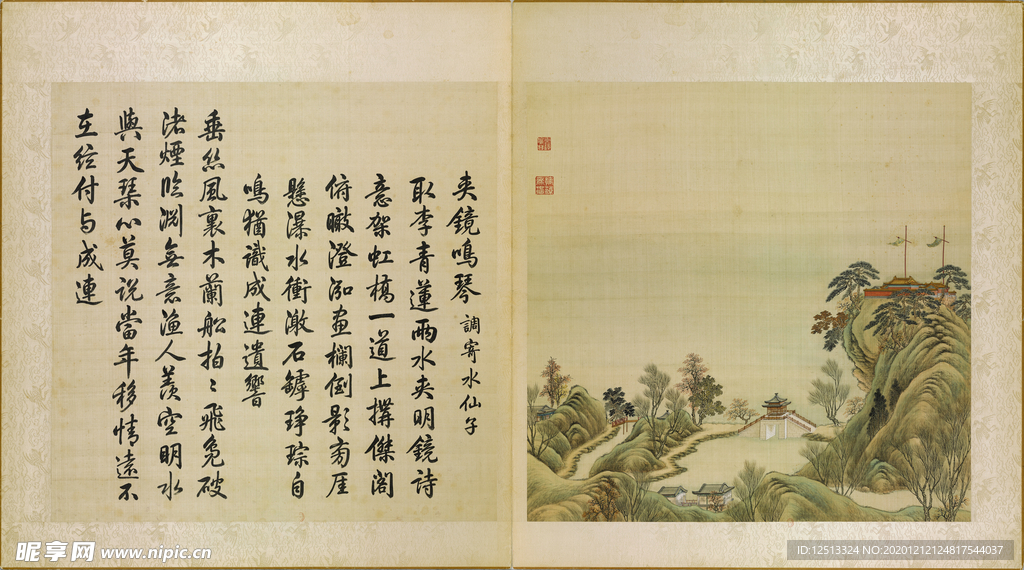 夹鏡鳴琴 調寄水仙子
取李青蓮兩水夹明鏡詩
意架虹橋一道上搆傑閣
俯瞰澄泓畫欄倒影旁厓
懸瀑水衝激石罅琤琮自
鳴猶識成連遺響
垂絲風裏木蘭船拍〻飛鳧破
渚煙臨渊無意漁人羨空明水
與天琴心莫説當年移情遠不
在絃付与成連
昵享网 www.nipic.cn
ID:12513324 NO:20201212124817544037